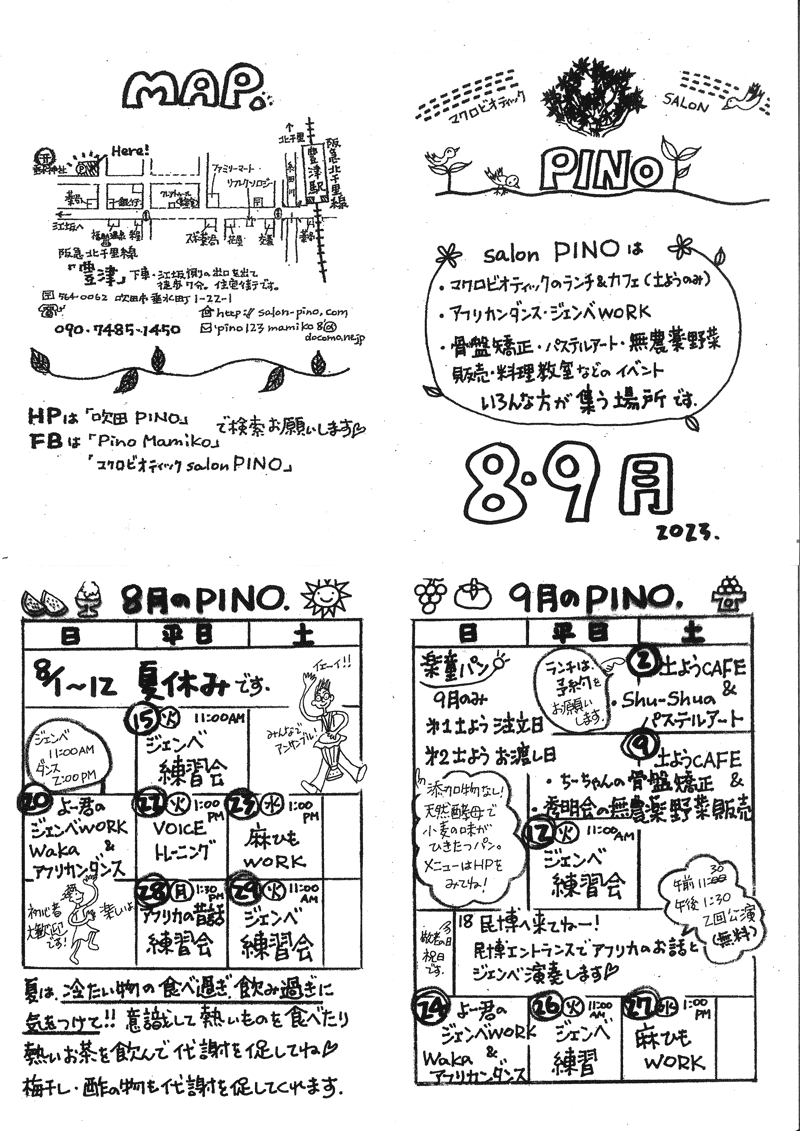 MAP.
Here!
↑
北千里
阪急北千里線
豊津駅
ファミリーマート
リフレクソロジー
薬局
江坂へ
スギ薬局
花屋
交番
阪急北千里線
「豊津」下車・江坂側の出口を出て
徒歩7分。住宅街です。
564-0062 吹田市垂水町1-22-1
http://salon-pino.com
090-7485-1450
pino123mamiko8@
docomo.ne.jp
HPは「吹田PINO」
で検索お願いします♡
FBは「Pino Mamiko」
「マクロビオティック salon PINO」
マクロビオティック
SALON
PINO
salon PINOは
・マクロビオティックのランチ&カフェ(土ようのみ)
・アフリカンダンス・ジェンベWORK
・骨盤矯正・パステルアート・無農薬野菜
販売・料理教室などのイベント
いろんな方が集う場所です。
8・9月
2023.
8月のPINO.
日 平日 土
8/1〜12 夏休みです。
イェーイ!!
みんなで
アンサンブル!
ジェンベ
11:00AM
ダンス
2:00PM
15 火 11:00AM
ジェンベ
練習会
20 よー君の
ジェンベWORK
Waka &
アフリカンダンス
22 火 1:00PM
VOICE
トレーニング
23 水 1:00PM
麻ひも
WORK
初心者
大歓迎
です!
楽しいよ
28 月 1:30PM
アフリカの昔話
練習会
29 火 11:00AM
ジェンベ
練習会
夏は、冷たい物の食べ過ぎ、飲み過ぎに
気をつけて!! 意識して熱いものを食べたり
熱いお茶を飲んで代謝を促してね♡
梅干し・酢の物も代謝を促してくれます.
9月のPINO.
日 平日 土
楽童パン
9月のみ
第1土よう 注文日
第2土よう お渡し日
ランチは、
予約を
お願い
します。
2 土ようCAFE
&
・Shu-Shuの
パステルアート
9 土ようCAFE
・ちーちゃんの骨盤矯正 &
・秀明会の無農薬野菜販売
添加物なし!
天然酵母で
小麦の味が
ひきたつパン。
メニューはHPを
みてね!
12 火 11:00AM
ジェンベ
練習会
午前11:30
午後1:30
2回公演
(無料)
敬老の日
祝日
です。
18 民博へ来てねー!
民博エントランスでアフリカのお話と
ジェンベ演奏します♡
24 よー君の
ジェンベWORK
Waka &
アフリカンダンス
26 火 11:00AM
ジェンベ
練習
27 水 1:00PM
麻ひも
WORK